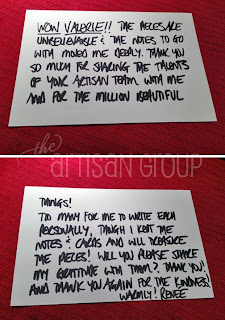 WOW VALERIE!! THE PIECES ARE
UNBELIEVABLE & THE NOTES TO GO
WITH MOVED ME DEEPLY. THANK YOU
SO MUCH FOR SHARING THE TALENTS
OF YOUR ARTISAN TEAM WITH ME
AND FOR THE MILLION BEAUTIFUL
the
ARTISAN GROUP
THINGS!
TOO MANY FOR ME TO WRITE EACH
PERSONALLY, THOUGH I KEPT THE
NOTES & CARDS AND WILL TREASURE
THE PIECES! WILL YOU PLEASE SHARE
MY GRATITUDE WITH THEM? THANK YOU!
AND THANK YOU AGAIN FOR THE KINDNESS!
WARMLY! RENEE